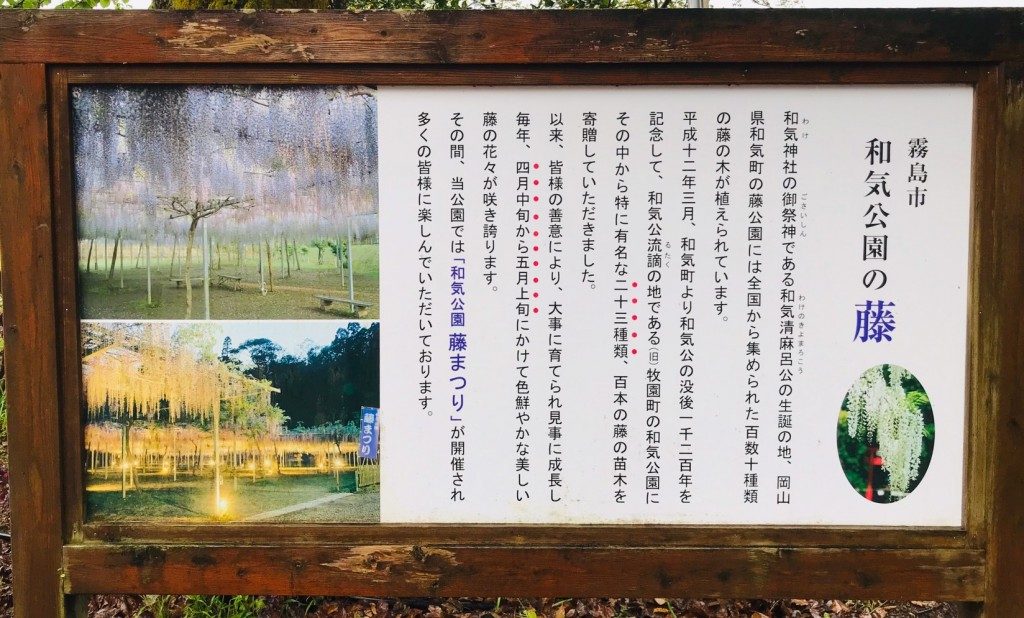 霧島市
和気公園の藤
和気神社の御祭神である和気清麻呂公の生誕の地、岡山
わけ
ごさいしん
わけのきよまろこう
県和気町の藤公園には全国から集められた百数十種類
の藤の木が植えられています。
平成十二年三月、和気町より和気公の没後一千二百年を
記念して、和気公流謫の地である(旧)牧園町の和気公園に
るたく
その中から特に有名な二十三種類、百本の藤の苗木を
寄贈していただきました。
以来、皆様の善意により、大事に育てられ見事に成長し
毎年、四月中旬から五月上旬にかけて色鮮やかな美しい
藤の花々が咲き誇ります。
その間、当公園では「和気公園 藤まつり」が開催され
多くの皆様に楽しんでいただいております。
藤まつり